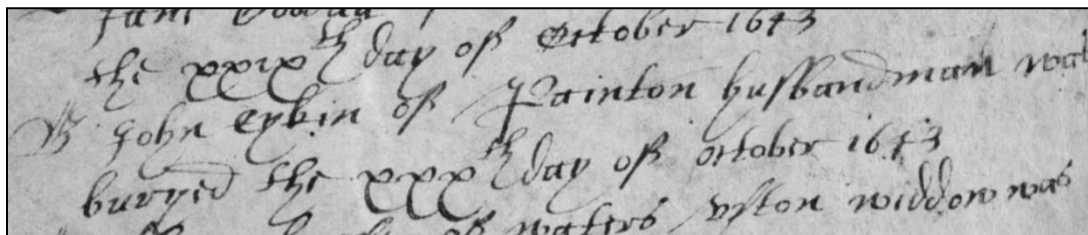 the xxixth day of October 1643
B John Eykin of Painton husbandman was
buryed the xxxth day of October 1643
of Waters Vpton widdow was